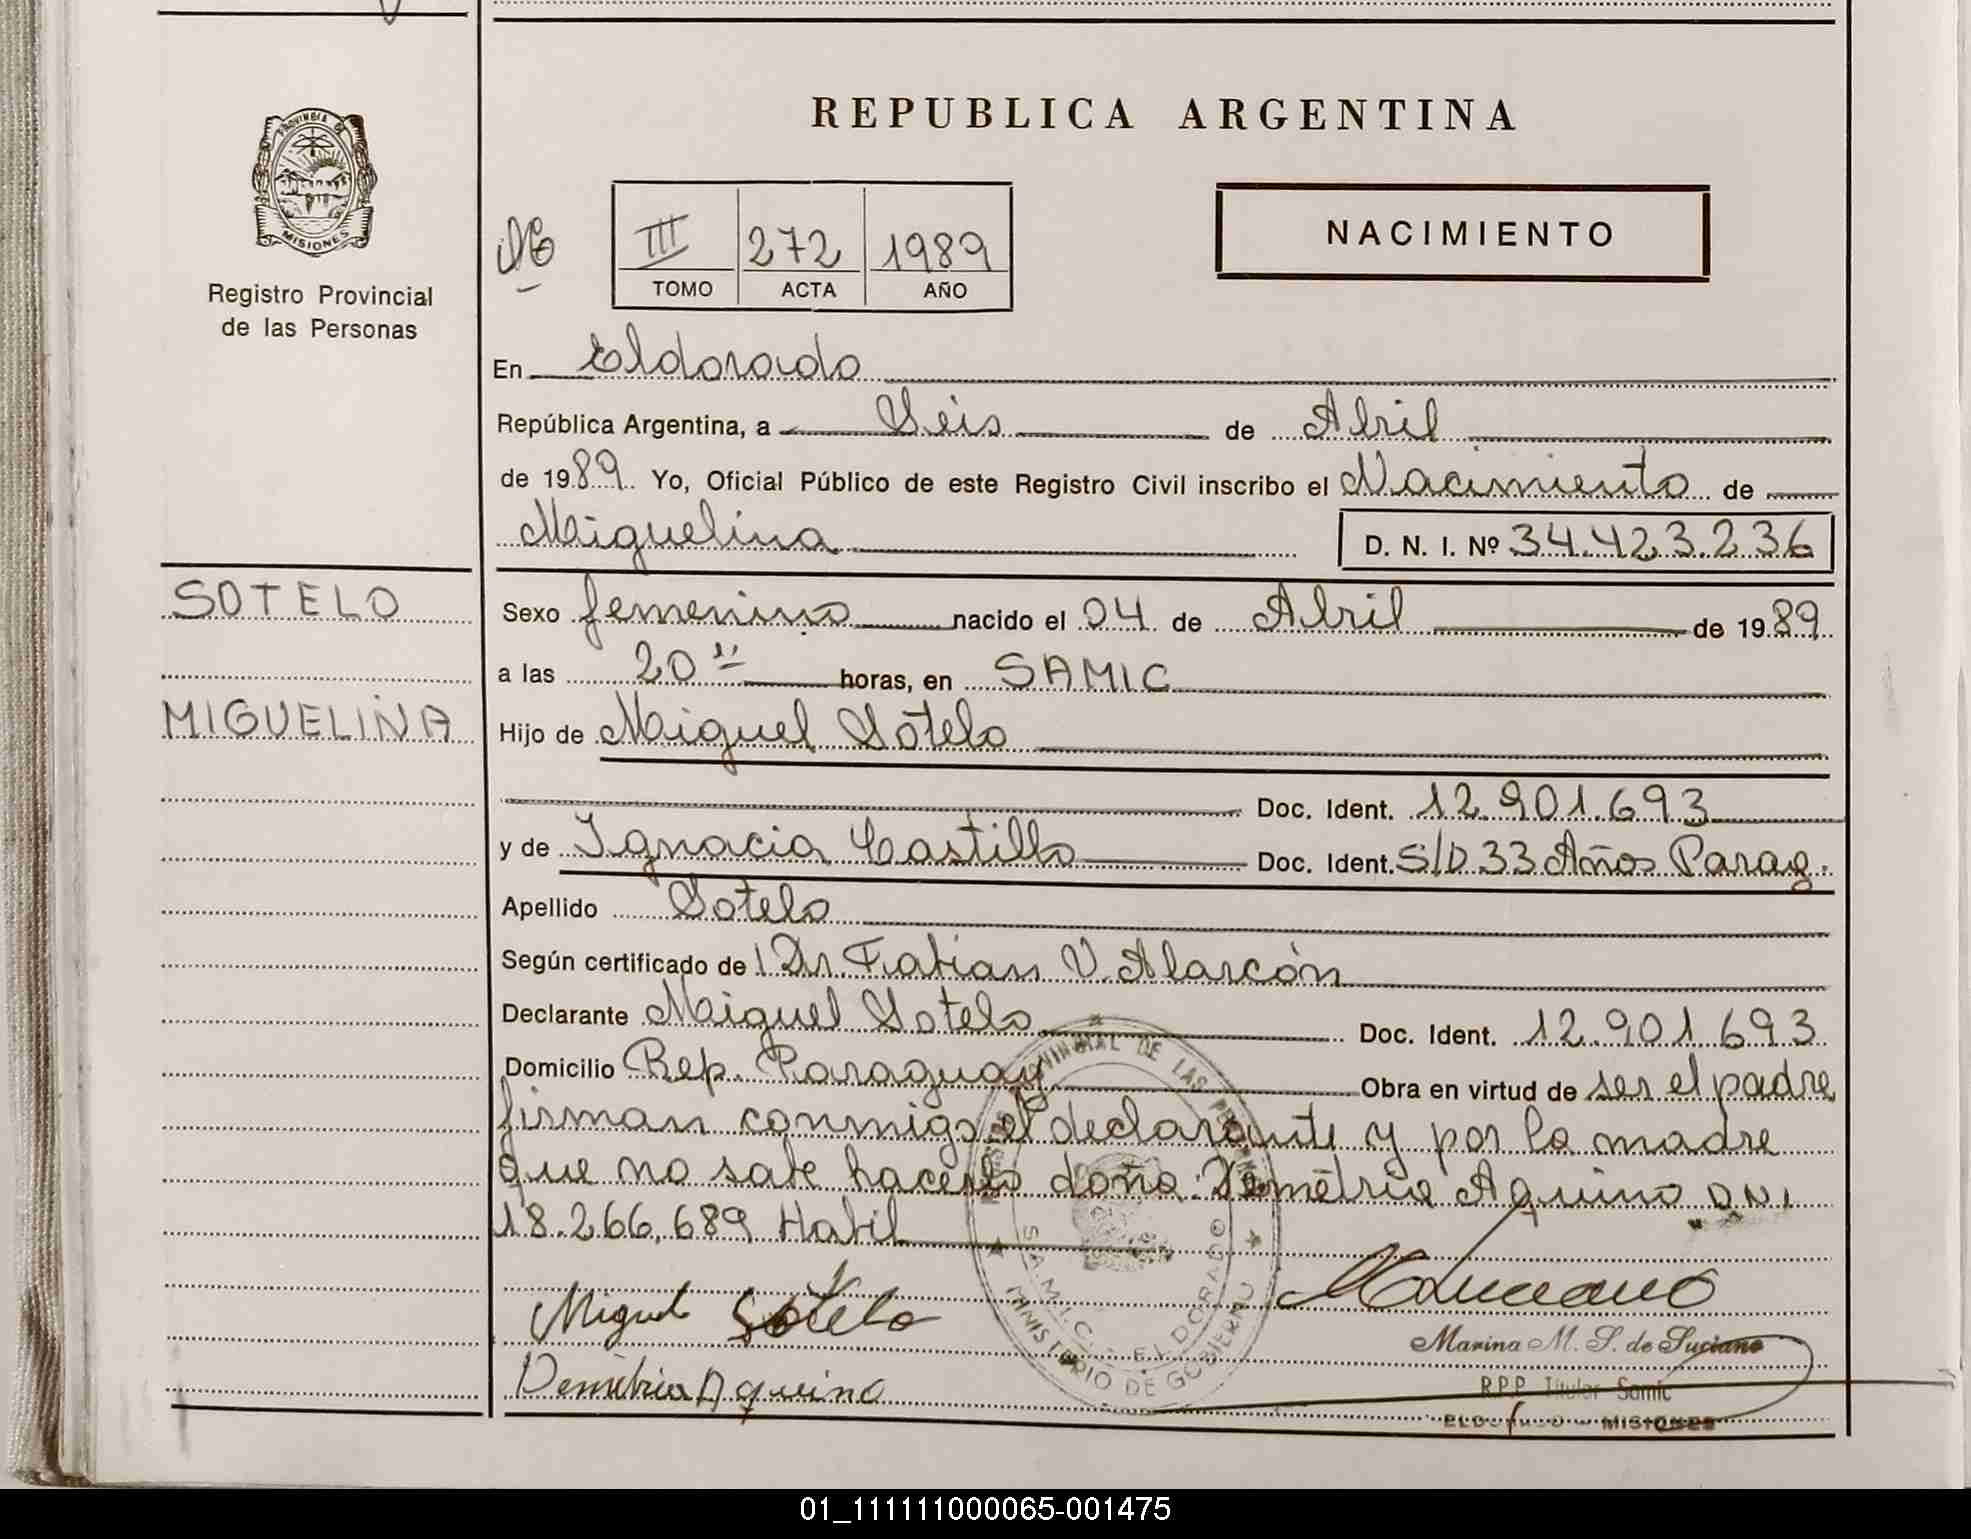 REPUBLICA ARGENTINA
PROVINCIA DE
MISIONES
Registro Provincial
de las Personas
III 272 1989
TOMO ACTA AÑO
NACIMIENTO
En Eldorado
República Argentina, a Seis de Abril
de 1989 Yo, Oficial Público de este Registro Civil inscribo el Nacimiento de
Miguelina D. N. I. Nº 34.423.236
SOTELO
MIGUELINA
Sexo femenino nacido el 04 de Abril de 1989
a las 20 horas, en SAMIC
Hijo de Miguel Sotelo
Doc. Ident. 12.901.693
y de Ignacia Castillo Doc. Ident. S/D 33 Años Parag.
Apellido Sotelo
Según certificado de Dr. Fabian V. Alarcón
Declarante Miguel Sotelo Doc. Ident. 12.901.693
Domicilio Rep. Paraguay Obra en virtud de ser el padre
firman conmigo el declarante y por la madre
que no sabe hacerlo doña: Demétria Aquino D.N.I
18.266.689 Habil
Miguel Sotelo
Demétria Aquino
PROVINCIAL DE LAS PERSONAS
S.A.M.I.C. - ELDORADO
MINISTERIO DE GOBIERNO
Marina M. S. de Luciano
R.P.P. Titular Samic
ELDORADO - MISIONES
01_111111000065-001475